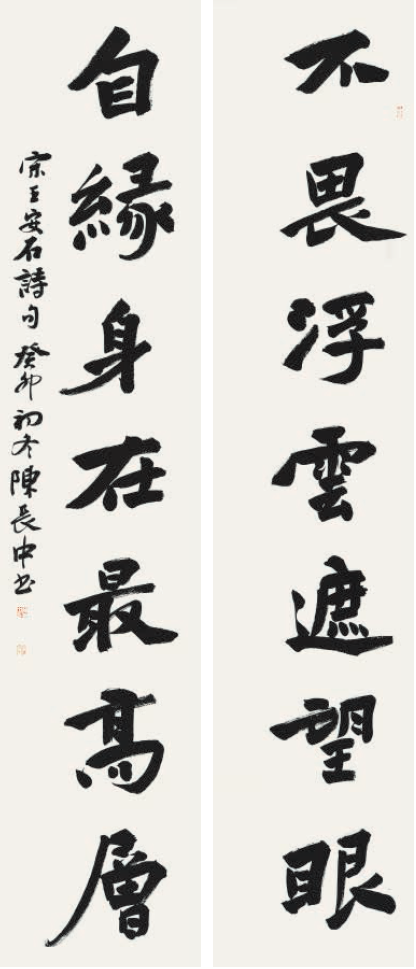 不畏浮雲遮望眼
自緣身在最高層
宋王安石詩句 癸卯初冬陳長中書